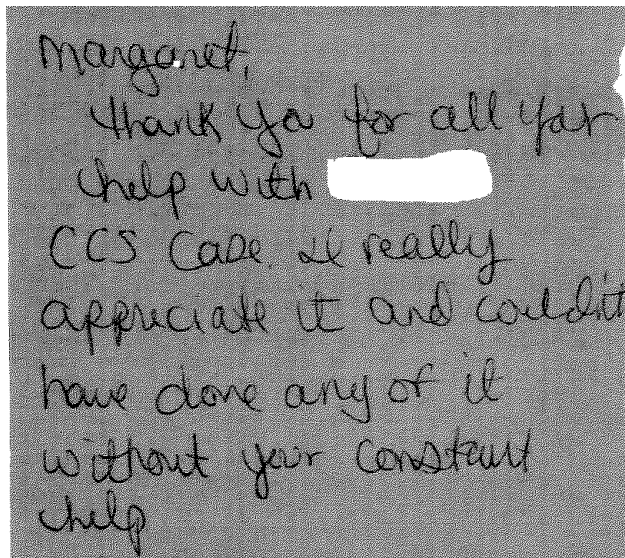 Margaret,
thank you for all your
help with
CCS Case. I really
appreciate it and couldn't
have done any of it
without your constant
help